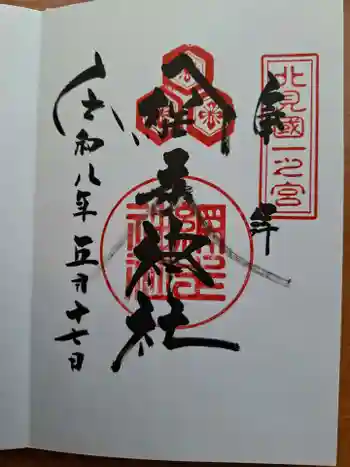 北見國一之宮
奉拝
網走神社
網走神社
令和八年五月十七日